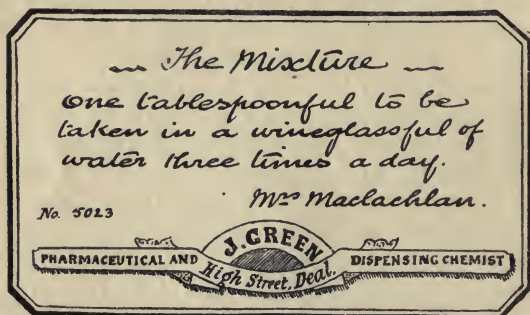 The Mixture
one tablespoonful to be
taken in a wineglassful of
water three times a day.
Mrs Maclachlan.
No. 5023
J. GREEN
PHARMACEUTICAL AND High Street, Deal. DISPENSING CHEMIST